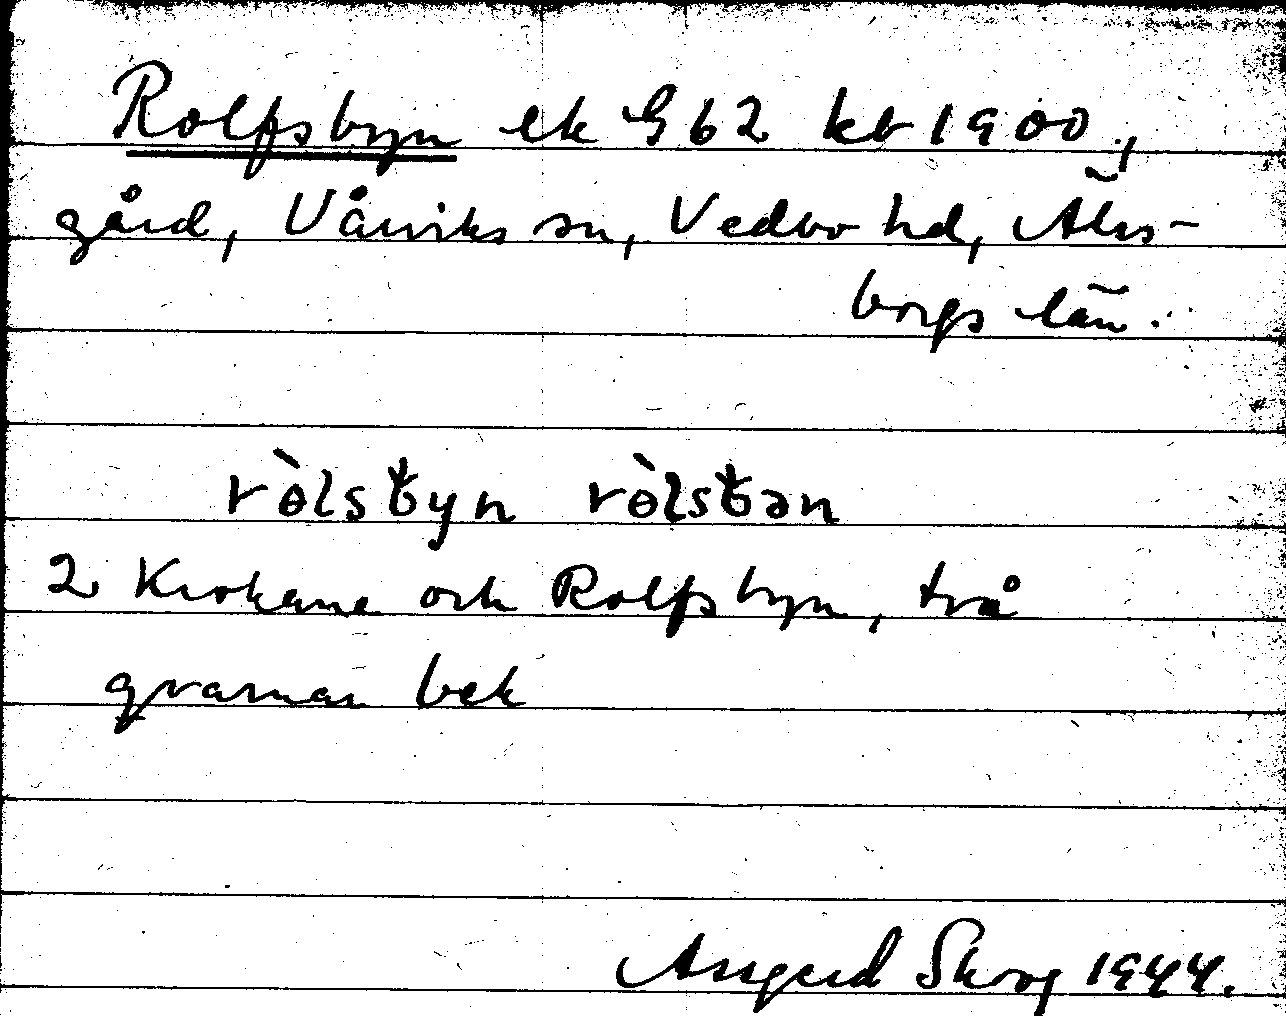 Rolfsbyn ek G62 kb 1900,
gård, Vårviks sn, Vedbo hd, Älvs-
borgs län.
rɵ̀lsbyn rɵ̀lsbən
2 Krokarne och Rolfsbyn, två
qvarnar bek
Asgerd Skog 1944.